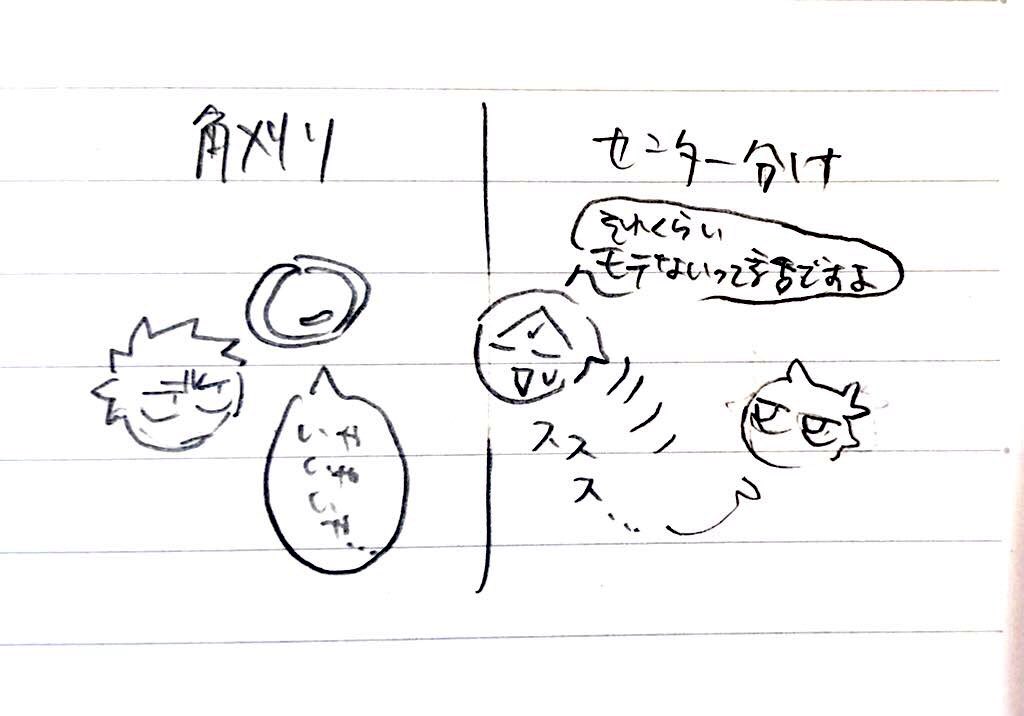 角刈り
センター分け
それくらい
モテないって事ですよ
スス
ス…